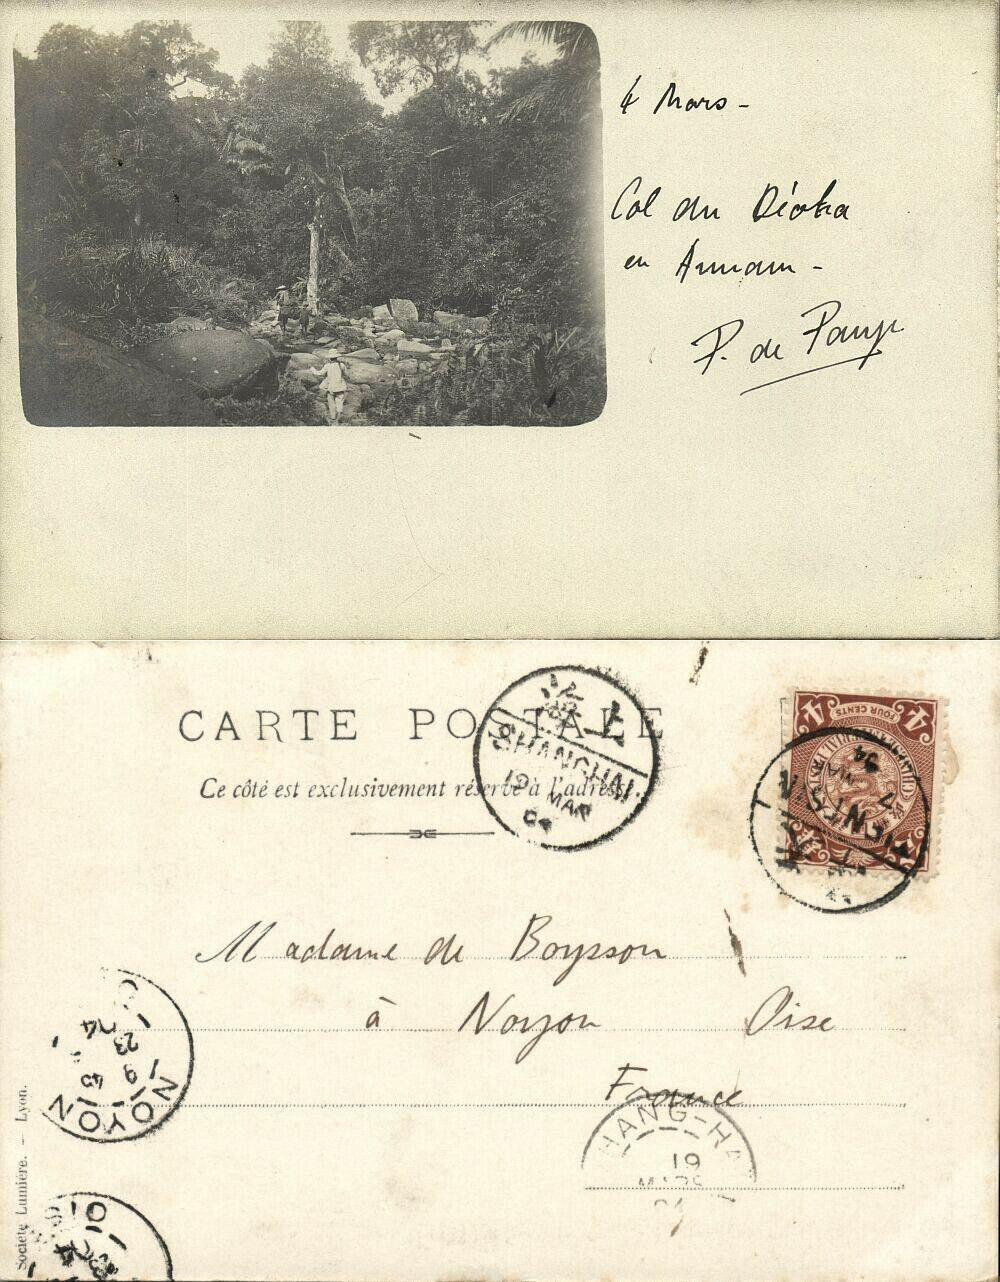 4 Mars -
Col du Déoka
en Annam -
P. de Pange
CARTE POSTALE
Ce côté est exclusivement réservé à l'adresse.
SHANGHAI
19 MAR
04
FOUR CENTS
4 4
TIENTSIN
7 MAR
04
Madame de Boysson
à Noyon Oise
France
HANG-HA
19
MARS
04
NOYON
9 45
23
04
OI
Société Lumière. - Lyon.